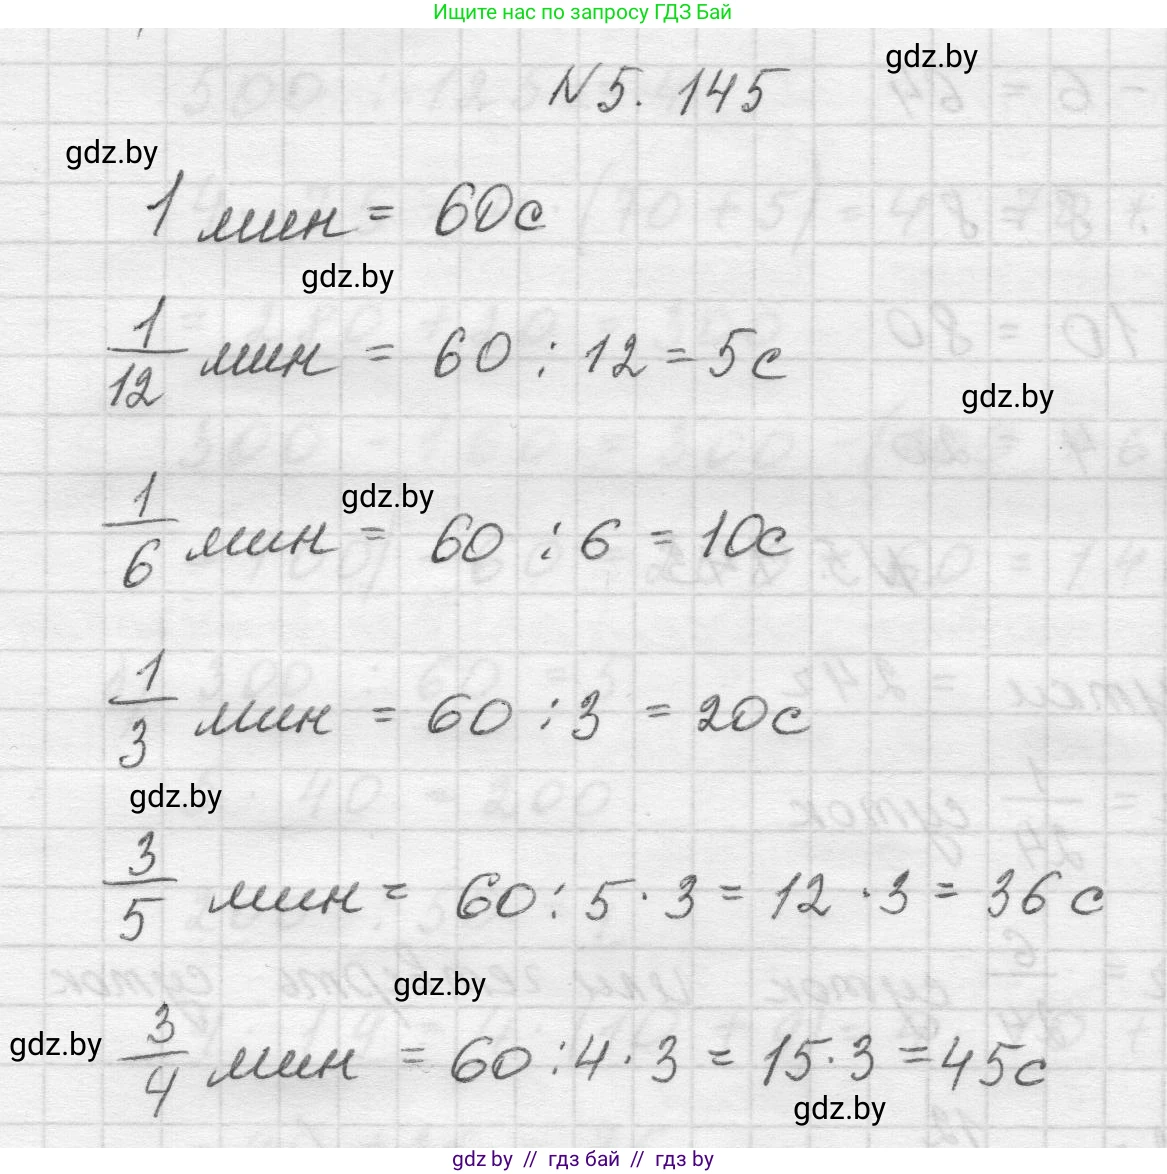 Ищите нас по запросу ГДЗ Бай
gdz.by
N 5. 145
gdz.by
1 мин = 60с
gdz.by
1/12 мин = 60 : 12 = 5с
gdz.by
gdz.by
1/6 мин = 60 : 6 = 10с
1/3 мин = 60 : 3 = 20с
gdz.by
3/5 мин = 60 : 5 · 3 = 12 · 3 = 36 с
gdz.by
gdz.by
3/4 мин = 60 : 4 · 3 = 15 · 3 = 45с
gdz.by
gdz.by // гдз бай // гдз by